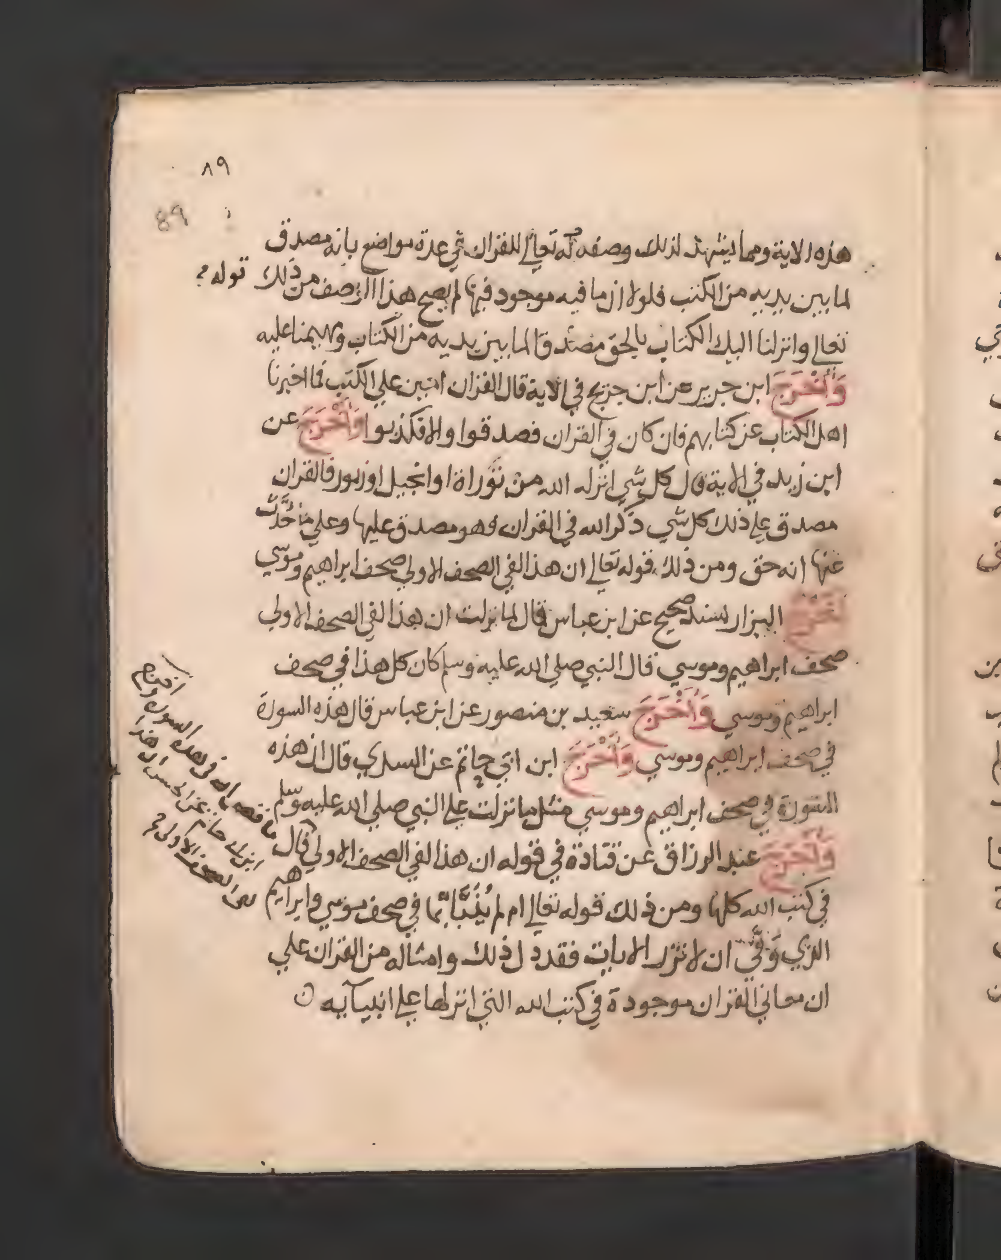 ٨٩
89
هذه الاية ومما يشهد لذلك وصفه تعالي للقران في عدة مواضع بانه مصدق
لما بين يديه من الكتب فلولا ان ما فيه موجود فيها لم يصح هذا الوصف من ذلك قوله
تعالي وانزلنا اليك الكتاب بالحق مصدقا لما بين يديه من الكتاب ومهيمنا عليه
وَأَخْرَجَ ابن جرير عن ابن جريج في الاية قال القران امين علي الكتب فما اخبرنا
اهل الكتاب عن كتابهم فان كان في القران فصدقوا والا فكذبوا وَأَخْرَجَ عن
ابن زيد في الاية قال كل شي انزله الله من توراة او انجيل او زبور فالقران
مصدق علي ذلك كل شي ذكر الله في القران فهو مصدق عليها وعلي ما حُدِّث
عنها انه حق ومن ذلك قوله تعالي ان هذا لفي الصحف الاولي صحف ابراهيم وموسي
اخرج البزار بسند صحيح عن ابن عباس قال لما نزلت ان هذا لفي الصحف الاولي
صحف ابراهيم وموسي قال النبي صلي الله عليه وسلم كان كل هذا في صحف
ابراهيم وموسي وَأَخْرَجَ سعيد بن منصور عن ابن عباس قال هذه السورة
في صحف ابراهيم وموسي وَأَخْرَجَ ابن ابي حاتم عن السدي قال ان هذه
السورة في صحف ابراهيم وموسي مثل ما نزلت علي النبي صلي الله عليه وسلم
وَأَخْرَجَ عبد الرزاق عن قتادة في قوله ان هذا لفي الصحف الاولي قال
ما قص الله في هذه السورة واخرج
ابن ابي حاتم عن الحسن ان هذا
لفي الصحف الاولي
في كتب الله كلها ومن ذلك قوله تعالي ام لم يُنَبَّأ بما في صحف موسي وابراهيم
الذي وَفَّي ان لا تزر الايات فقد دل ذلك وامثاله من القران علي
ان معاني القران موجودة في كتب الله التي انزلها علي انبيآيه